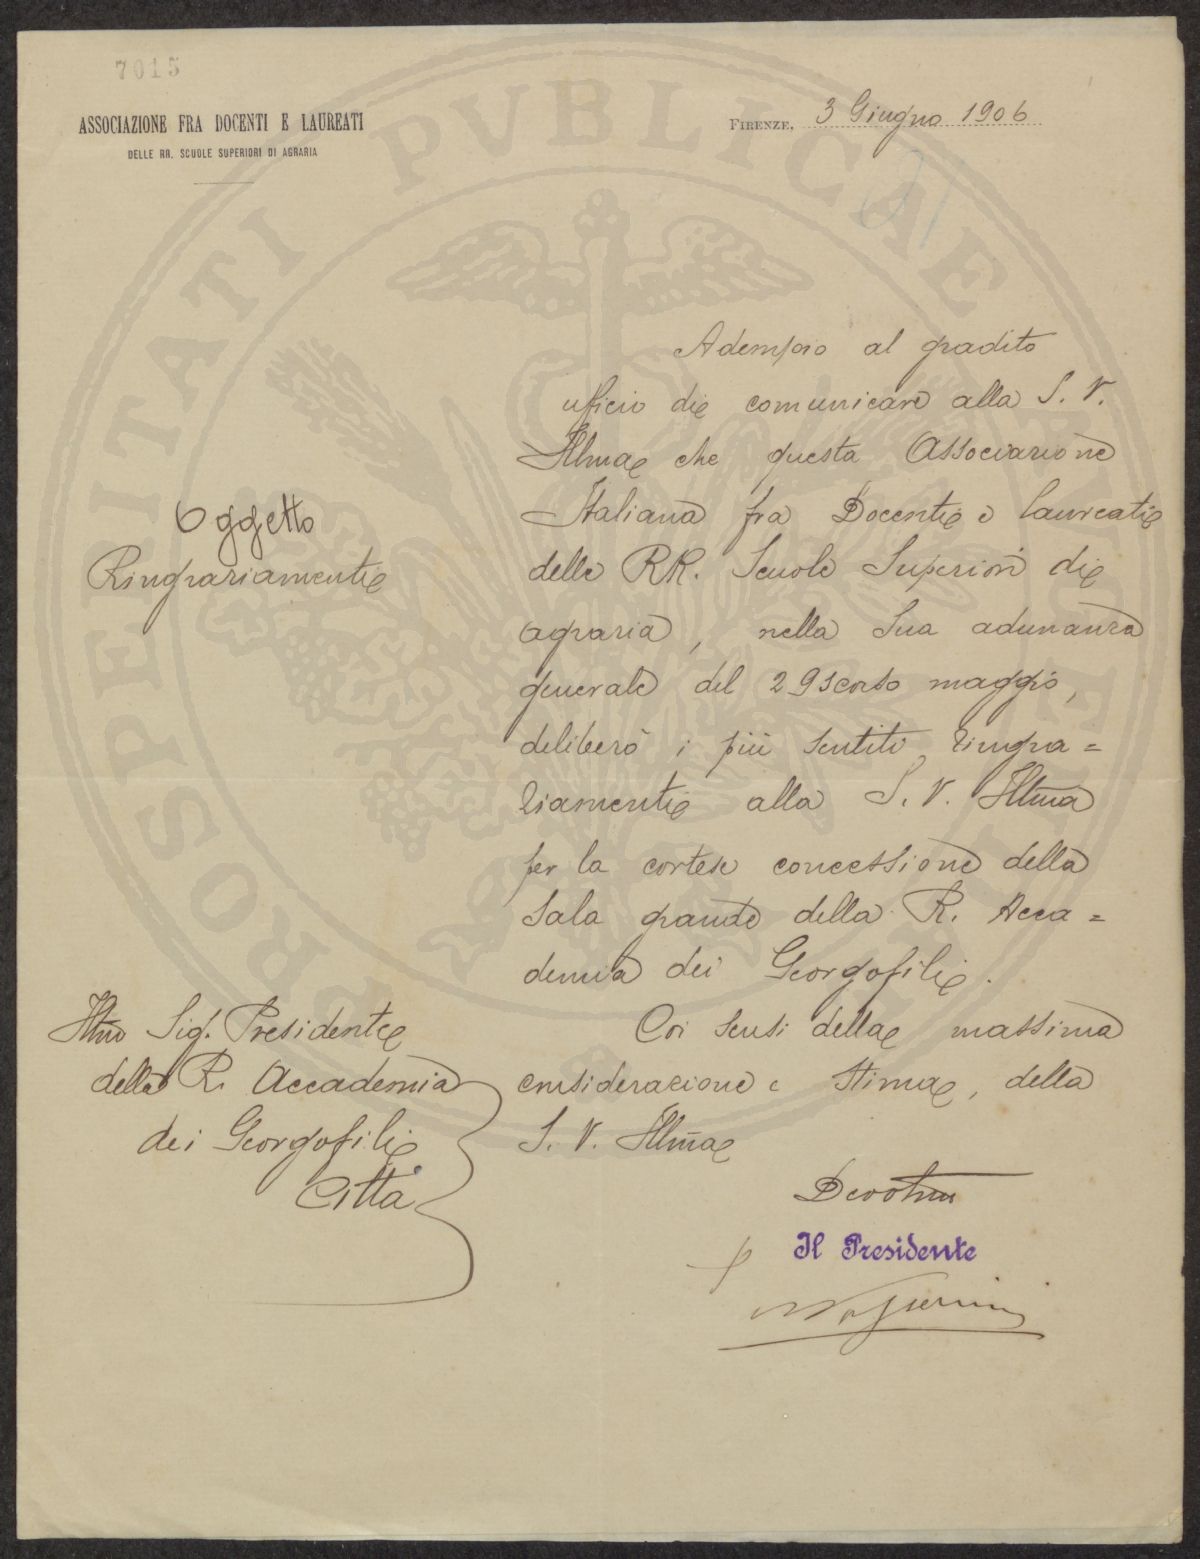 7015
ASSOCIAZIONE FRA DOCENTI E LAUREATI
DELLE RR. SCUOLE SUPERIORI DI AGRARIA
FIRENZE, 3 Giugno 1906
Adempio al gradito
uficio di comunicare alla S. V.
Illma che questa Associazione
Italiana fra Docenti e laureati
delle RR. Scuole Superiori di
agraria, nella Sua adunanza
generale del 29 scorso maggio,
deliberò i più sentiti ringra=
ziamenti alla S. V. Illma
per la cortese concessione della
Sala grande della R. Acca=
demia dei Georgofili.
Coi sensi della massima
considerazione e stima, della
S. V. Illma
Devotmo
Il Presidente
Oggetto
Ringraziamenti
Illmo Sig. Presidente
della R. Accademia
dei Georgofili
Città
PROSPERITATI PVBLICAE